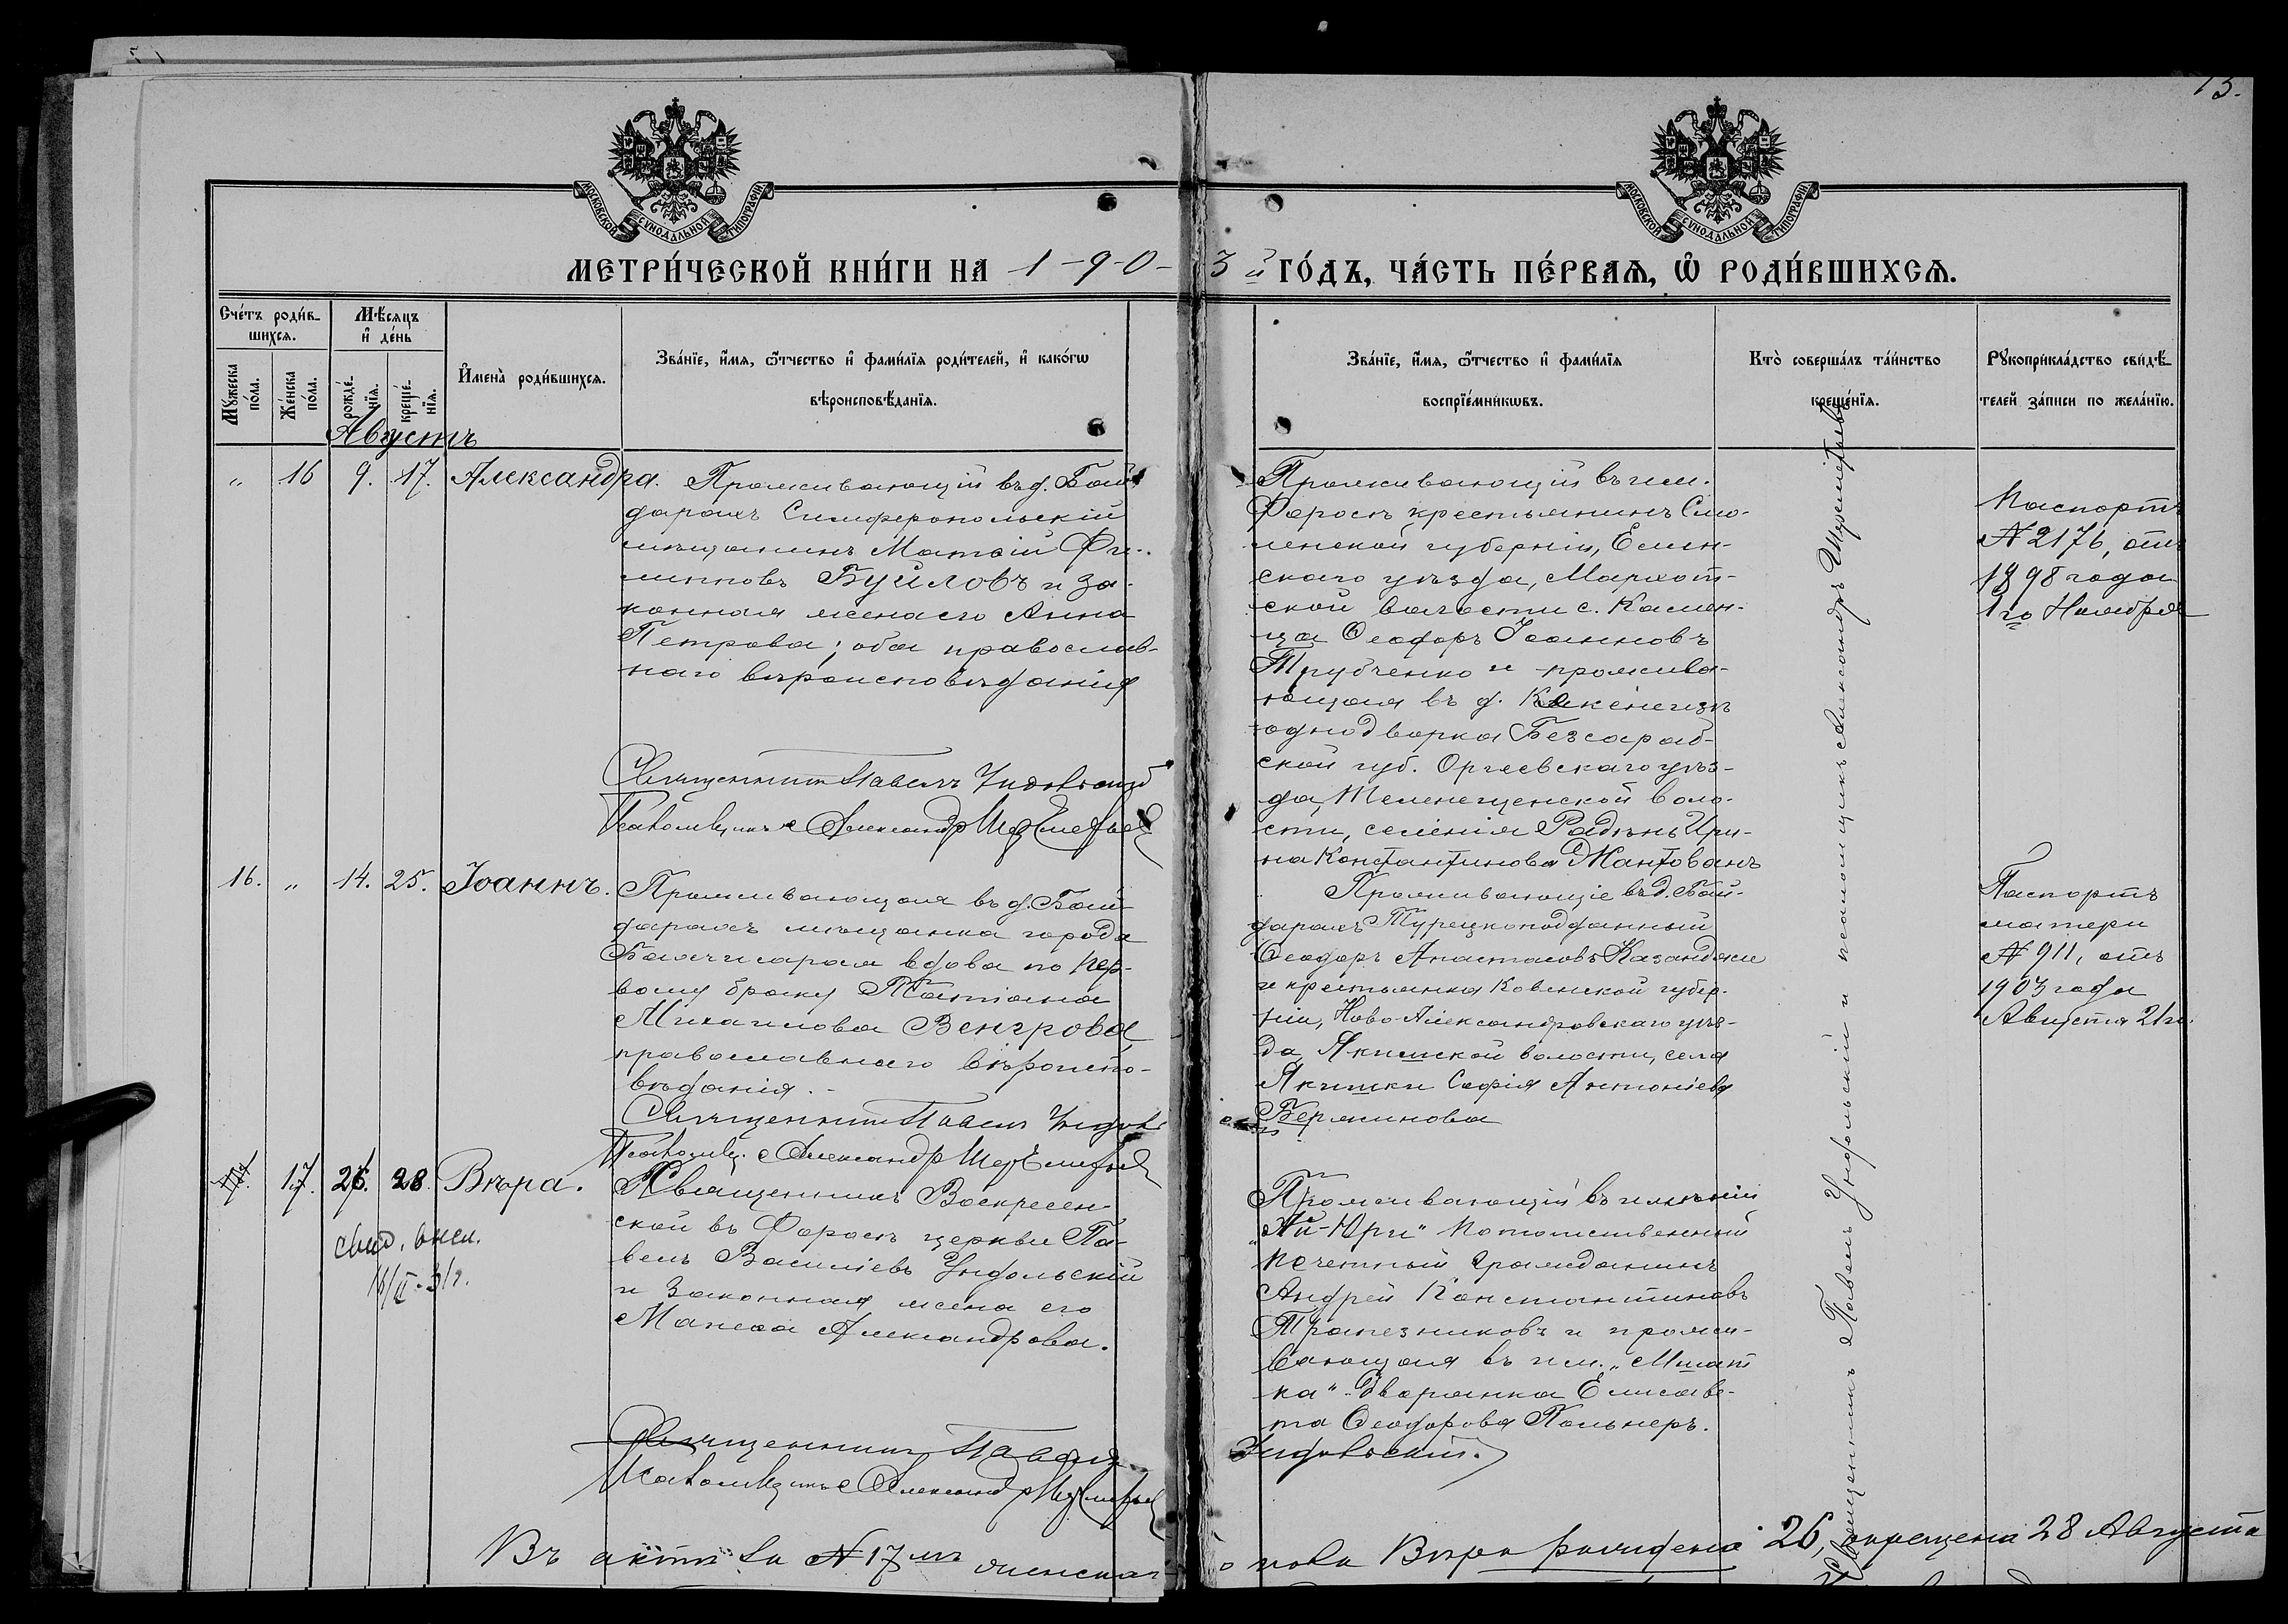 13.
МОСКОВСКОЙ СѴНОДАЛЬНОЙ ТИПОГРАФІИ
МОСКОВСКОЙ СѴНОДАЛЬНОЙ ТИПОГРАФІИ
МЕТРИ́ЧЕСКОЙ КНИ́ГИ НА 1-9-0-3й ГО́ДЪ, ЧА́СТЬ ПЕ́РВАѦ, Ѡ҆ РОДИ́ВШИХСѦ.
Сче́тъ роди́в-
шихсѧ.
Мꙋжеска по́ла.
Же́нска по́ла.
Мѣ́сяцъ
и҆ де́нь
рожде́-
нїѧ.
креще́-
нїѧ.
И҆мена̀ роди́вшихсѧ.
Зва́нїе, и҆́мѧ, ѻ҆́тчество и҆ фами́лїѧ роди́телей, и҆ како́гѡ
вѣроисповѣ́данїѧ.
Зва́нїе, и҆́мѧ, ѻ҆́тчество и҆ фами́лїѧ
воспрїе́мникѡвъ.
Кто̀ соверша́лъ та́инство
креще́нїѧ.
Рꙋкоприкла́дство свидѣ́-
телей за́писи по жела́нїю.
Августъ
„ 16 9. 17. Александра.
Проживающій въ д. Бай-
дарахъ Симферопольскій
мѣщанинъ Матвій Фи-
липповъ Буйловъ и за-
конная жена его Анна
Петрова; оба православ-
наго вѣроисповѣданія
Священникъ Павелъ Ундольскій
Псаломщикъ Александръ Шереметьевъ
Проживающій въ им.
Форосъ крестьянинъ Смо-
ленской губерніи, Ельн-
скаго уѣзда, Мархот-
ской волости с. Камен-
ца Ѳеодоръ Іоанновъ
Трубченко и прожива-
ющая въ д. Кекенеизъ
однодворка Безсараб-
ской губ. Оргеевскаго уѣз-
да, Теленещенской воло-
сти, селенія Радѣнь Ири-
на Константинова Мантованъ
Паспортъ
№ 2176, отъ
1898 года
1го Ноября
16. „ 14. 25. Іоаннъ.
Проживающая въ д. Бай-
дарахъ мѣщанка города
Бахчисарая вдова по пер-
вому браку Татіана
Михаилова Венгрова
православнаго вѣроиспо-
вѣданія. -
Священникъ Павелъ
Псаломщ. Александръ Шереметьевъ
Проживающіе въ д. Бай-
дарахъ Турецкоподданный
Ѳеодоръ Анастасовъ Казанджи
и крестьянка Ковенской губер-
ніи, Ново-Александровскаго уѣз-
да, Якишской волости, села
Якишки Софія Антоніева
Вермінова
Паспортъ
матери
№ 911, отъ
1903 года
Августа 21го.
17. 26. 28 Вѣра.
свид. высл.
16/II-31г.
Священникъ Воскресен-
ской въ Форосѣ церкви Па-
велъ Василіевъ Ундольскій
и законная жена его
Александрова.
Священникъ Павелъ
Псаломщикъ Александръ Шереметьевъ
Проживающій въ имѣніи
„Ай-Юри" Потомственный
почетный гражданинъ
Андрей Константиновъ
Трапезниковъ и прожи-
вающая въ им. „Мшат-
ка" Дворянка Елисаве-
та Ѳеодорова Кольнеръ.
Ундольскій.
Священникъ Павелъ Ундольскій и псаломщикъ Александръ Шереметьевъ
Въ актѣ за № 17мъ женскаго пола Вѣра рождена 26, крещена 28 Августа